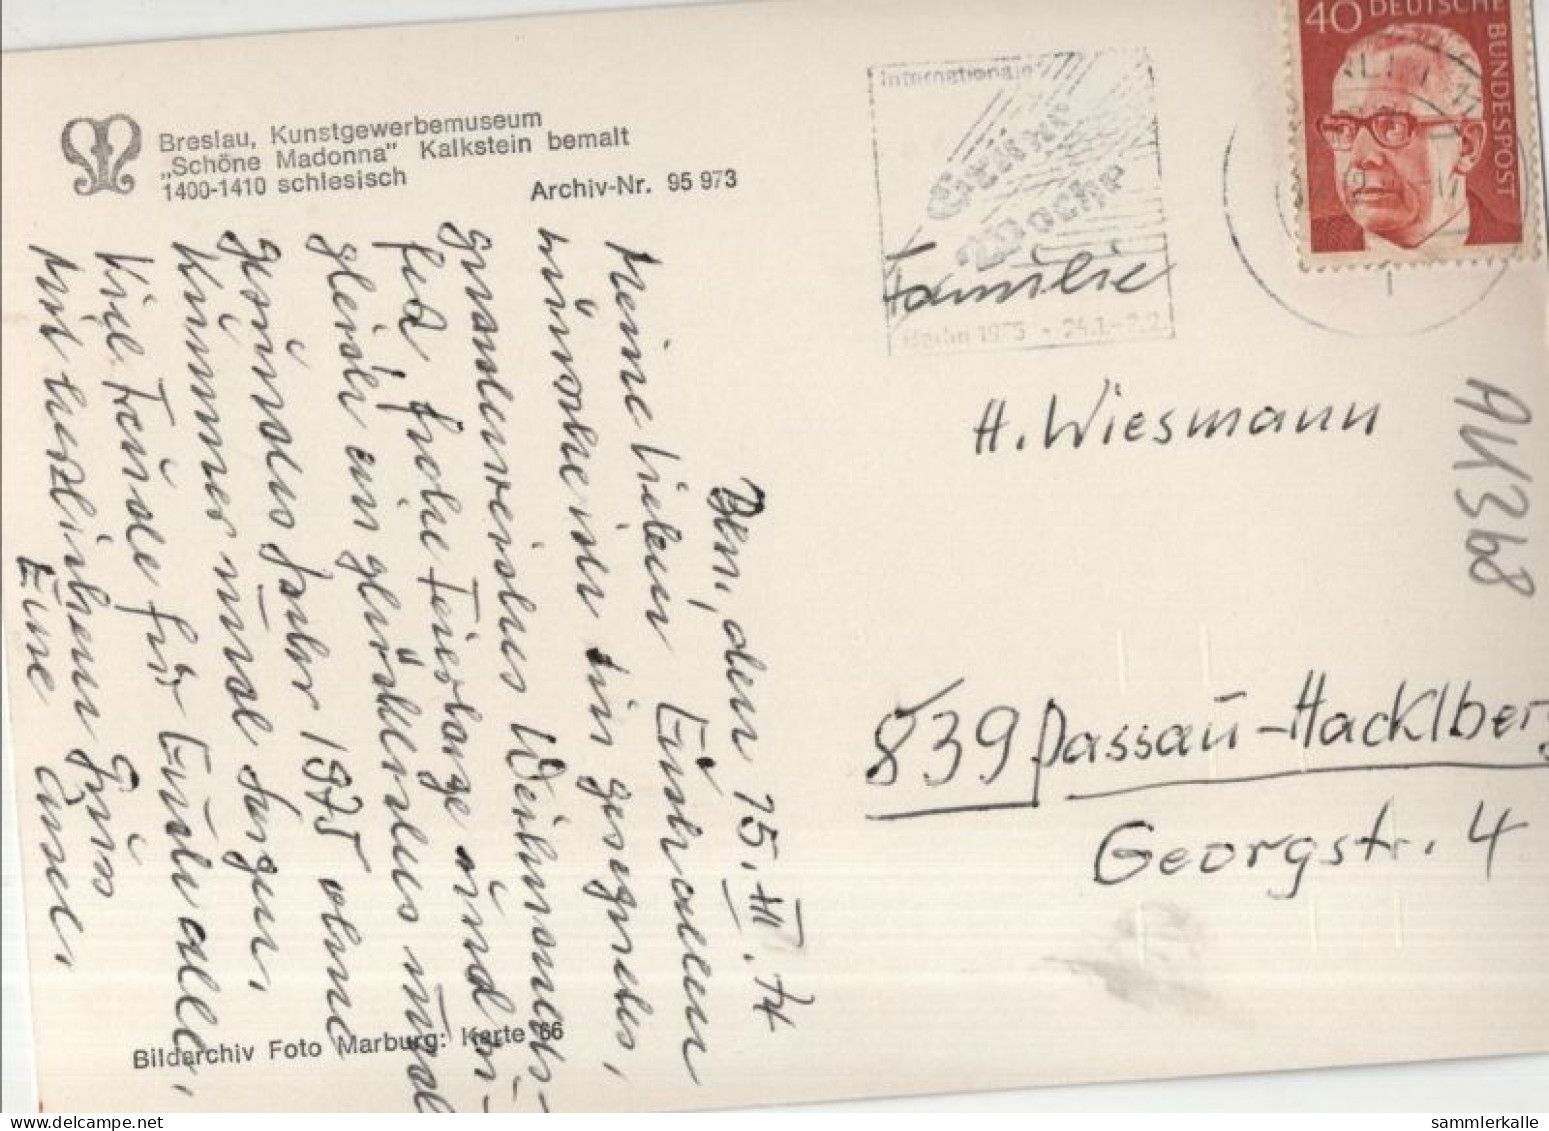 Breslau, Kunstgewerbemuseum
„Schöne Madonna" Kalkstein bemalt
1400-1410 schlesisch
Archiv-Nr. 95 973
Internationale
Grüne
Woche
Berlin 1975 - 24.1.-2.2.
40 DEUTSCHE
BUNDESPOST
Familie
H. Wiesmann
839 Passau-Hacklberg
Georgstr. 4
AK368
den 15. XII. 74
Meine lieben
wünsche ich ein gesegnetes,
gnadenreiches Weihnachts-
fest, frohe Feiertage und zu-
gleich ein glückliches und
gesundes Jahr 1975 ohne
Kummer und Sorgen,
Viel Freude für Euch alle,
Mit herzlichem Gruß
Eure
Bildarchiv Foto Marburg: Karte 66
sammlerkalle